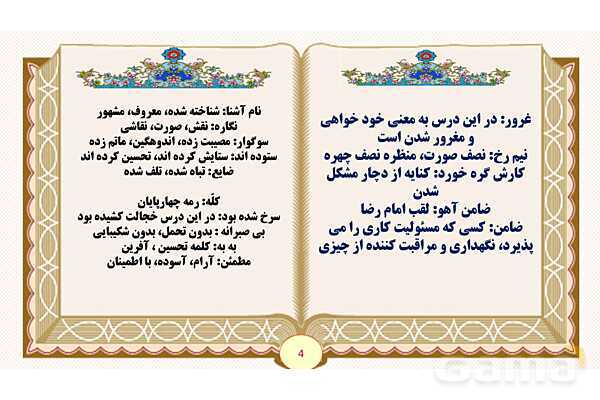 غرور: در این درس به معنی خود خواهی
و مغرور شدن است
نیم رخ: نصف صورت، منظره نصف چهره
کارش گره خورد: کنایه از دچار مشکل
شدن
ضامن آهو: لقب امام رضا
ضامن: کسی که مسئولیت کاری را می
پذیرد، نگهداری و مراقبت کننده از چیزی
نام آشنا: شناخته شده، معروف، مشهور
نگاره: نقش، صورت، نقاشی
سوگوار: مصیبت زده، اندوهگین، ماتم زده
ستوده اند: ستایش کرده اند، تحسین کرده اند
ضایع: تباه شده، تلف شده
کلّه: رمه چهارپایان
سرخ شده بود: در این درس خجالت کشیده بود
بی صبرانه : بدون تحمل، بدون شکیبایی
به به: کلمه تحسین ، آفرین
مطمئن: آرام، آسوده، با اطمینان
4
Gama